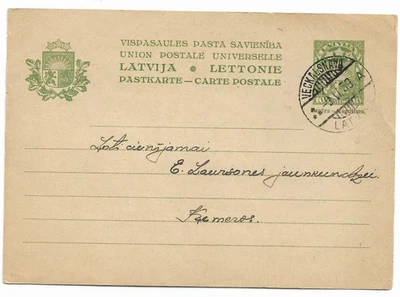 VISPASAULES PASTA SAVIENĪBA
UNION POSTALE UNIVERSELLE
LATVIJA • LETTONIE
PASTKARTE — CARTE POSTALE
Ļoti cienījamai
E. Laursones jaunkundzei
Ķemeros.